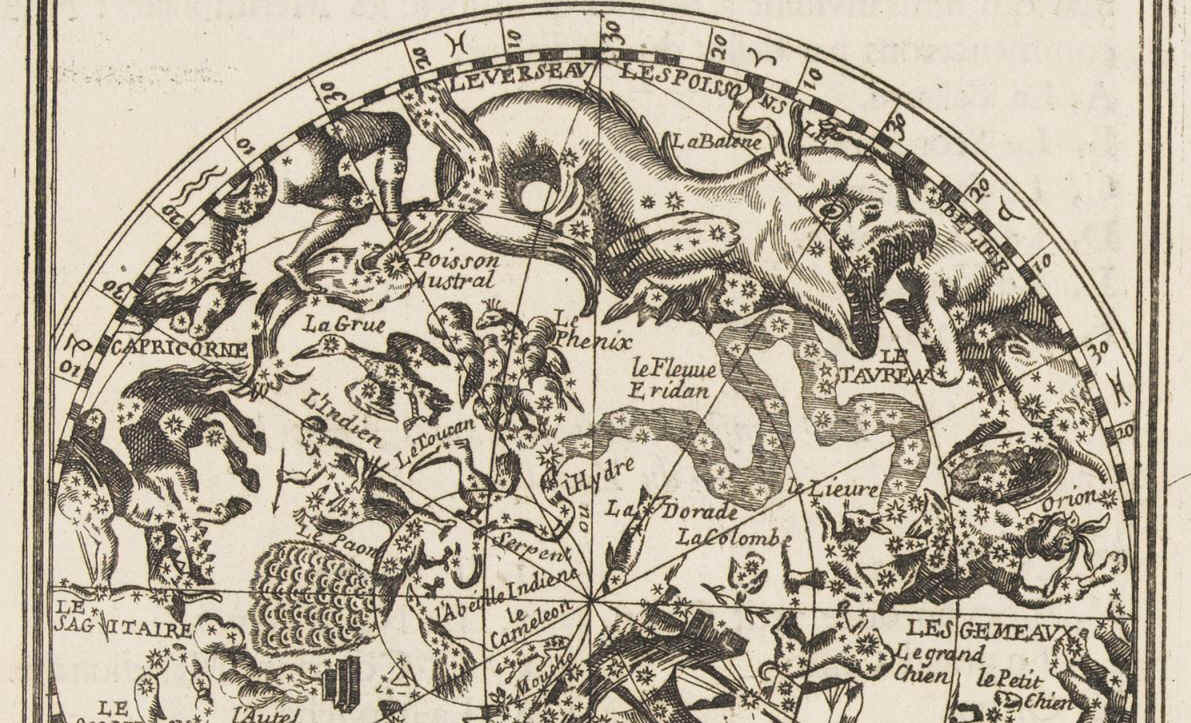 30
20
10
20
10
30
10
20
30
10
30
20
30
20
10
LE VERSEAV
LES POISSONS
La Balene
BELIER
Poisson
Austral
CAPRICORNE
La Grue
Le
Phenix
le Fleuue
Eridan
LE
TAVREAV
L'Indien
Le Toucan
l'Hydre
La Dorade
le Lieure
Orion
La Colombe
Le Paon
Serpent
l'Abeille Indiene
le
Cameleon
Mouche
LE
SAGITAIRE
LES GEMEAUX
Le grand
Chien
le Petit
Chien
l'Autel
LE